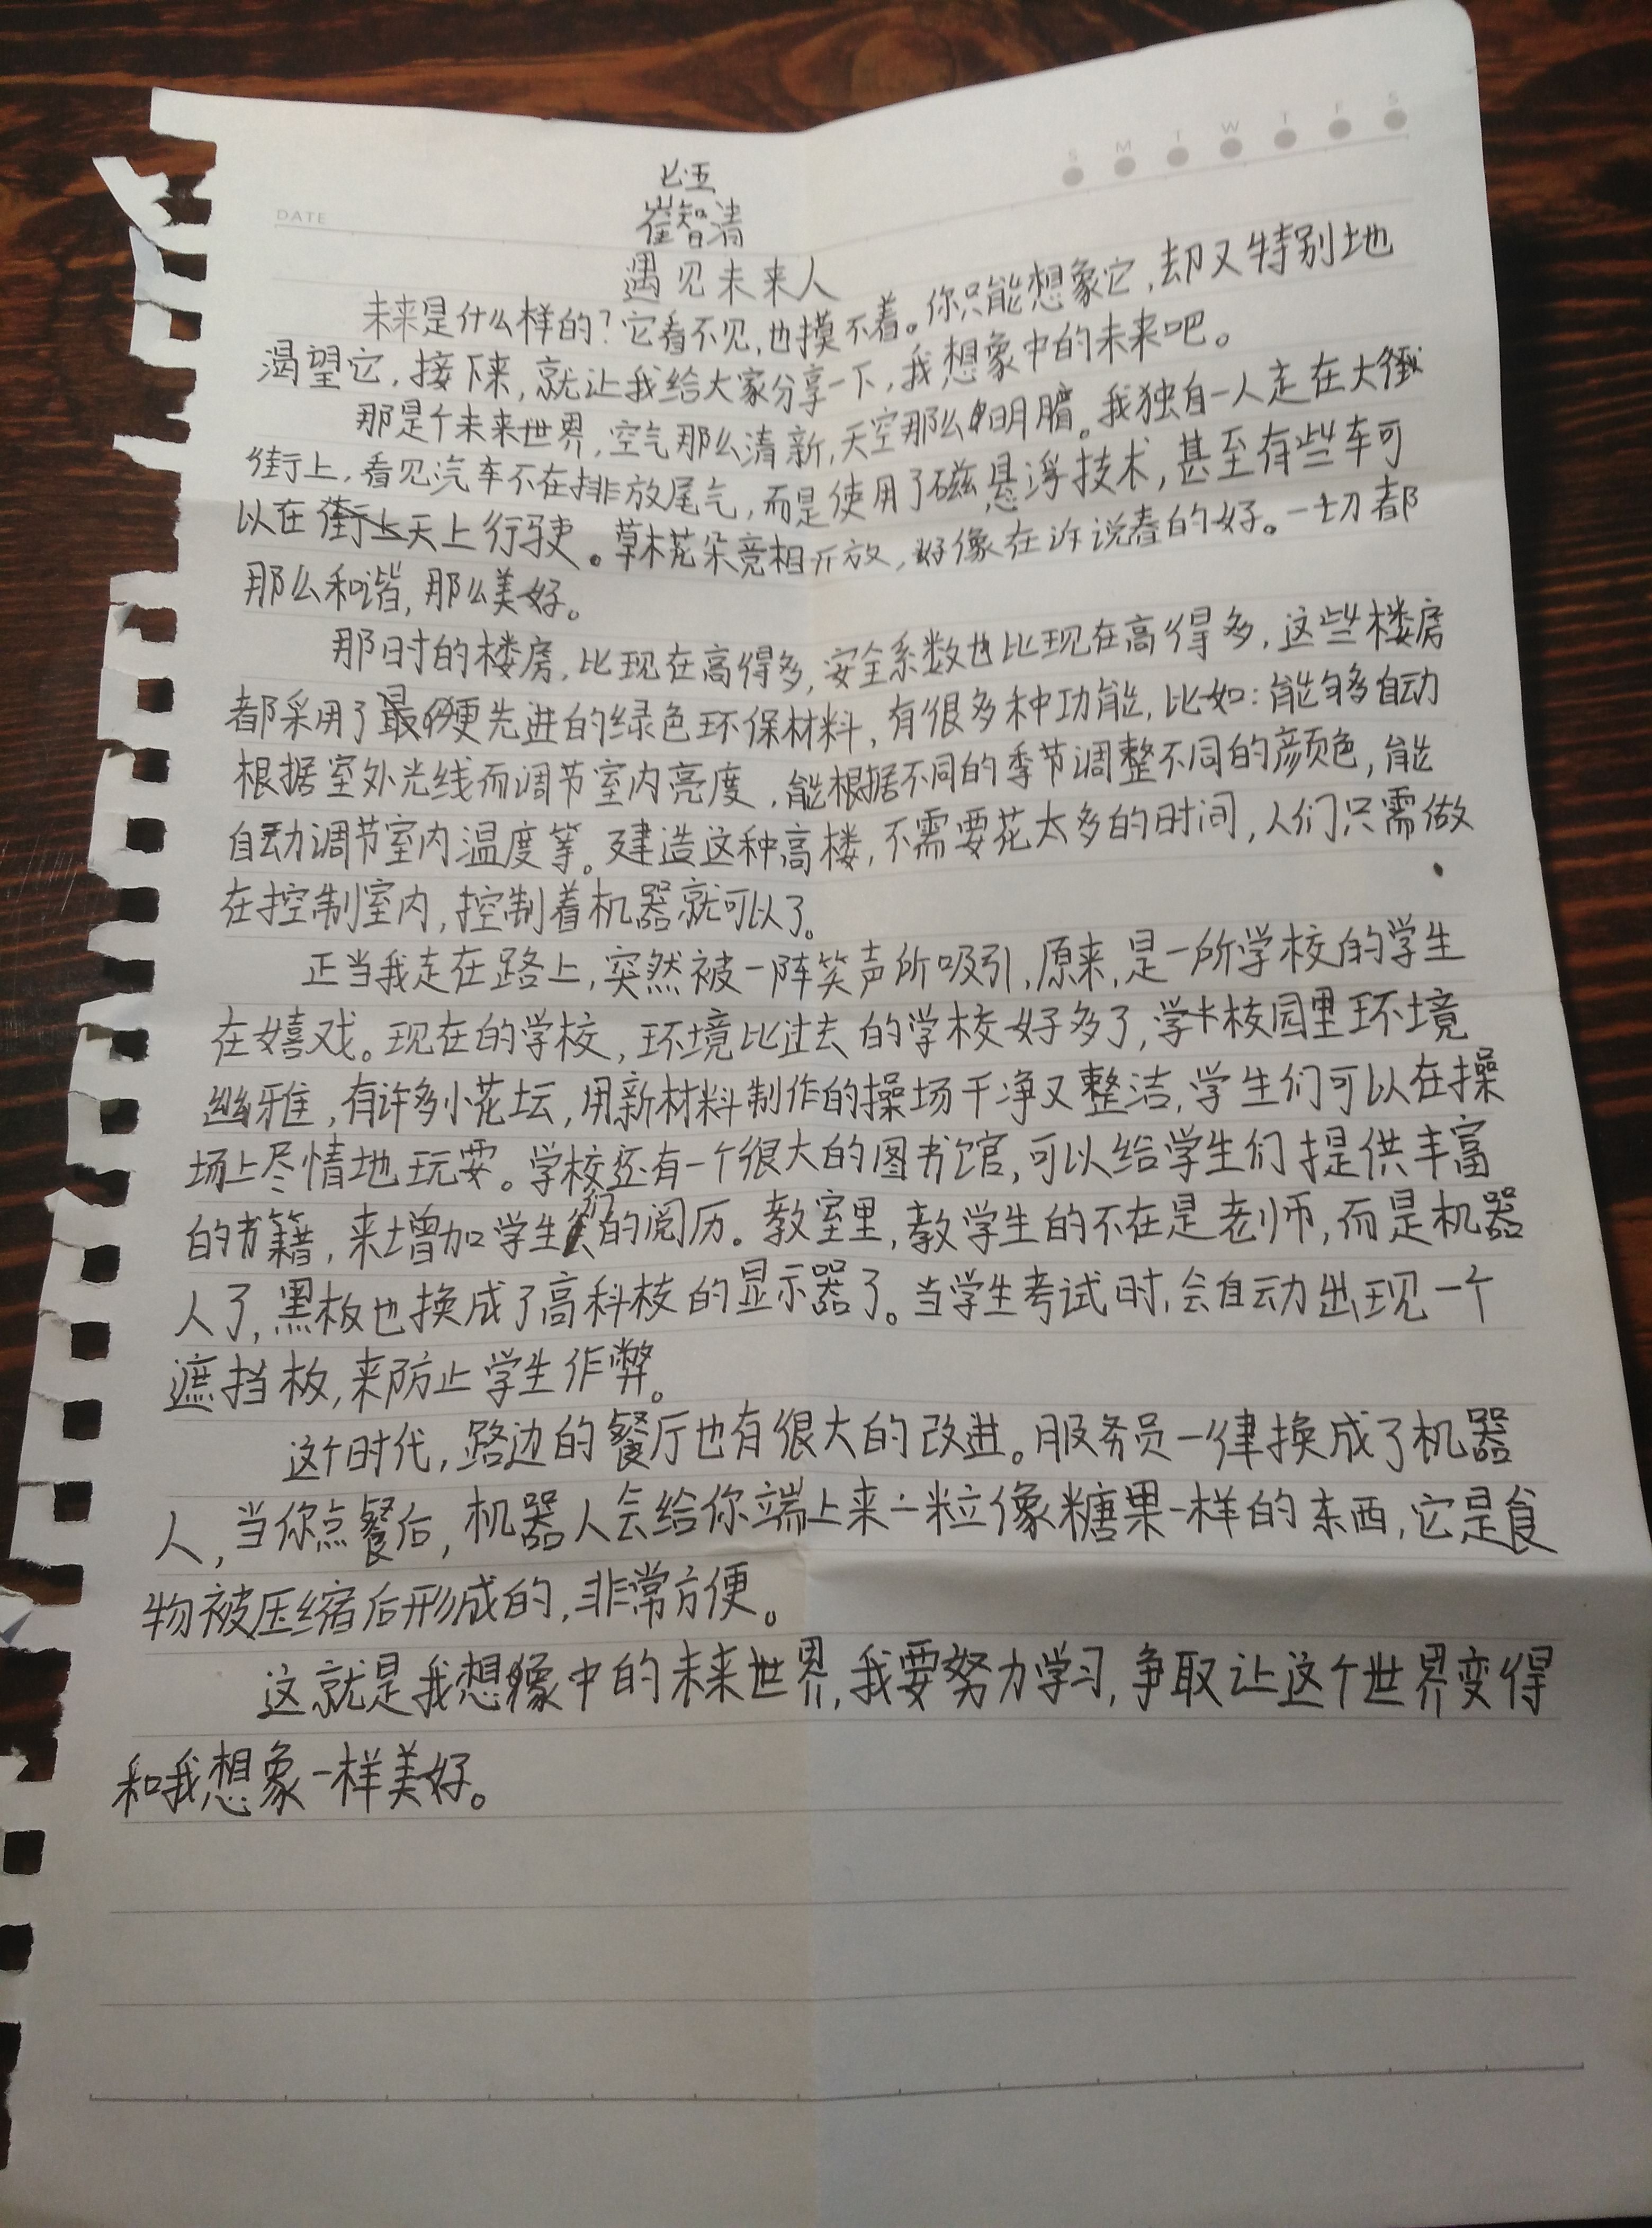 S M T W T F S
DATE
七五
崔智清
遇见未来人
未来是什么样的?它看不见,也摸不着。你只能想象它,却又特别地
渴望它,接下来,就让我给大家分享一下,我想象中的未来吧。
那是个未来世界,空气那么清新,天空那么明腊。我独自一人走在大
街上,看见汽车不在排放尾气,而是使用了磁悬浮技术,甚至有些车可
以在天上行驶。草木花朵竞相开放,好像在诉说春的好。一切都
那么和谐,那么美好。
那时的楼房,比现在高得多,安全系数也比现在高得多,这些楼房
都采用了更先进的绿色环保材料,有很多种功能,比如:能够自动
根据室外光线而调节室内亮度,能根据不同的季节调整不同的颜色,能
自动调节室内温度等。建造这种高楼,不需要花太多的时间,人们只需做
在控制室内,控制着机器就可以了。
正当我走在路上,突然被一阵笑声所吸引,原来,是一所学校的学生
在嬉戏。现在的学校,环境比过去的学校好多了,学校园里环境
幽雅,有许多小花坛,用新材料制作的操场干净又整洁,学生们可以在操
场上尽情地玩耍。学校还有一个很大的图书馆,可以给学生们提供丰富
的书籍,来增加学生们的阅历。教室里,教学生的不在是老师,而是机器
人了,黑板也换成了高科技的显示器了。当学生考试时,会自动出现一个
遮挡板,来防止学生作弊。
这个时代,路边的餐厅也有很大的改进。服务员一律换成了机器
人,当你点餐后,机器人会给你端上来一粒像糖果一样的东西,它是食
物被压缩后形成的,非常方便。
这就是我想像中的未来世界,我要努力学习,争取让这个世界变得
和我想象一样美好。